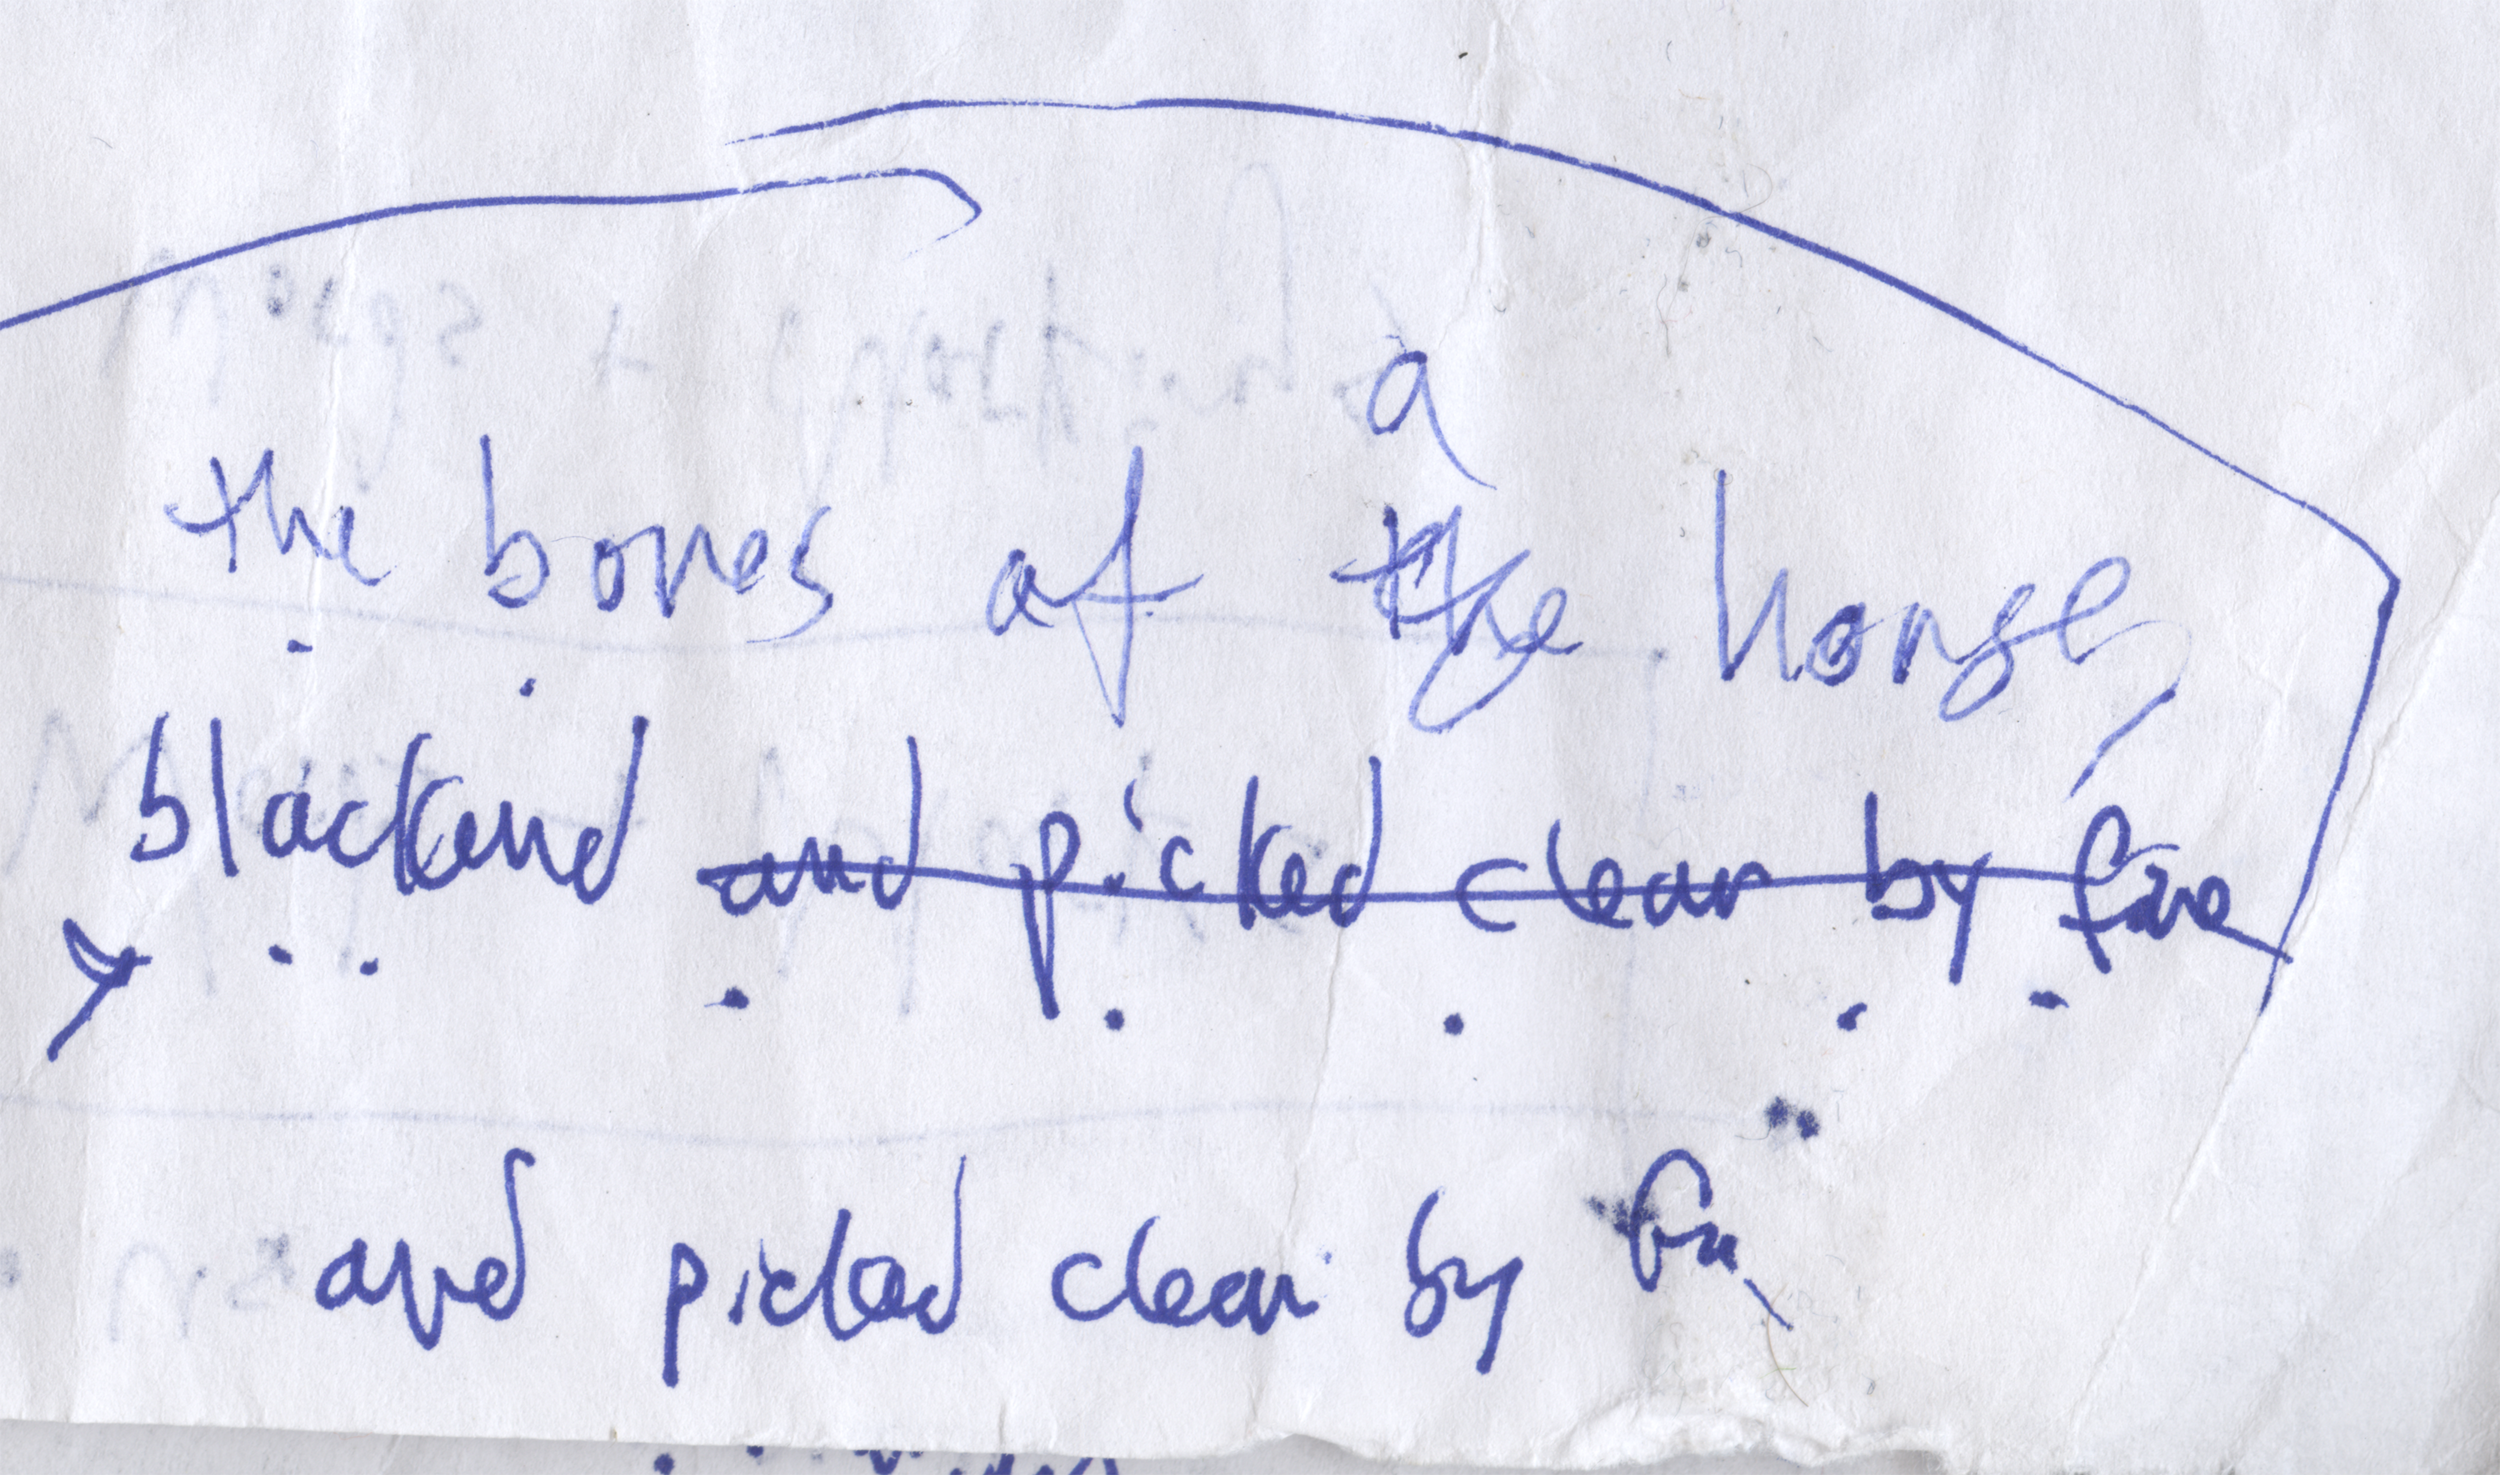 a
the bones of the horse,
blackend and picked clean by fire
and picked clean by fire